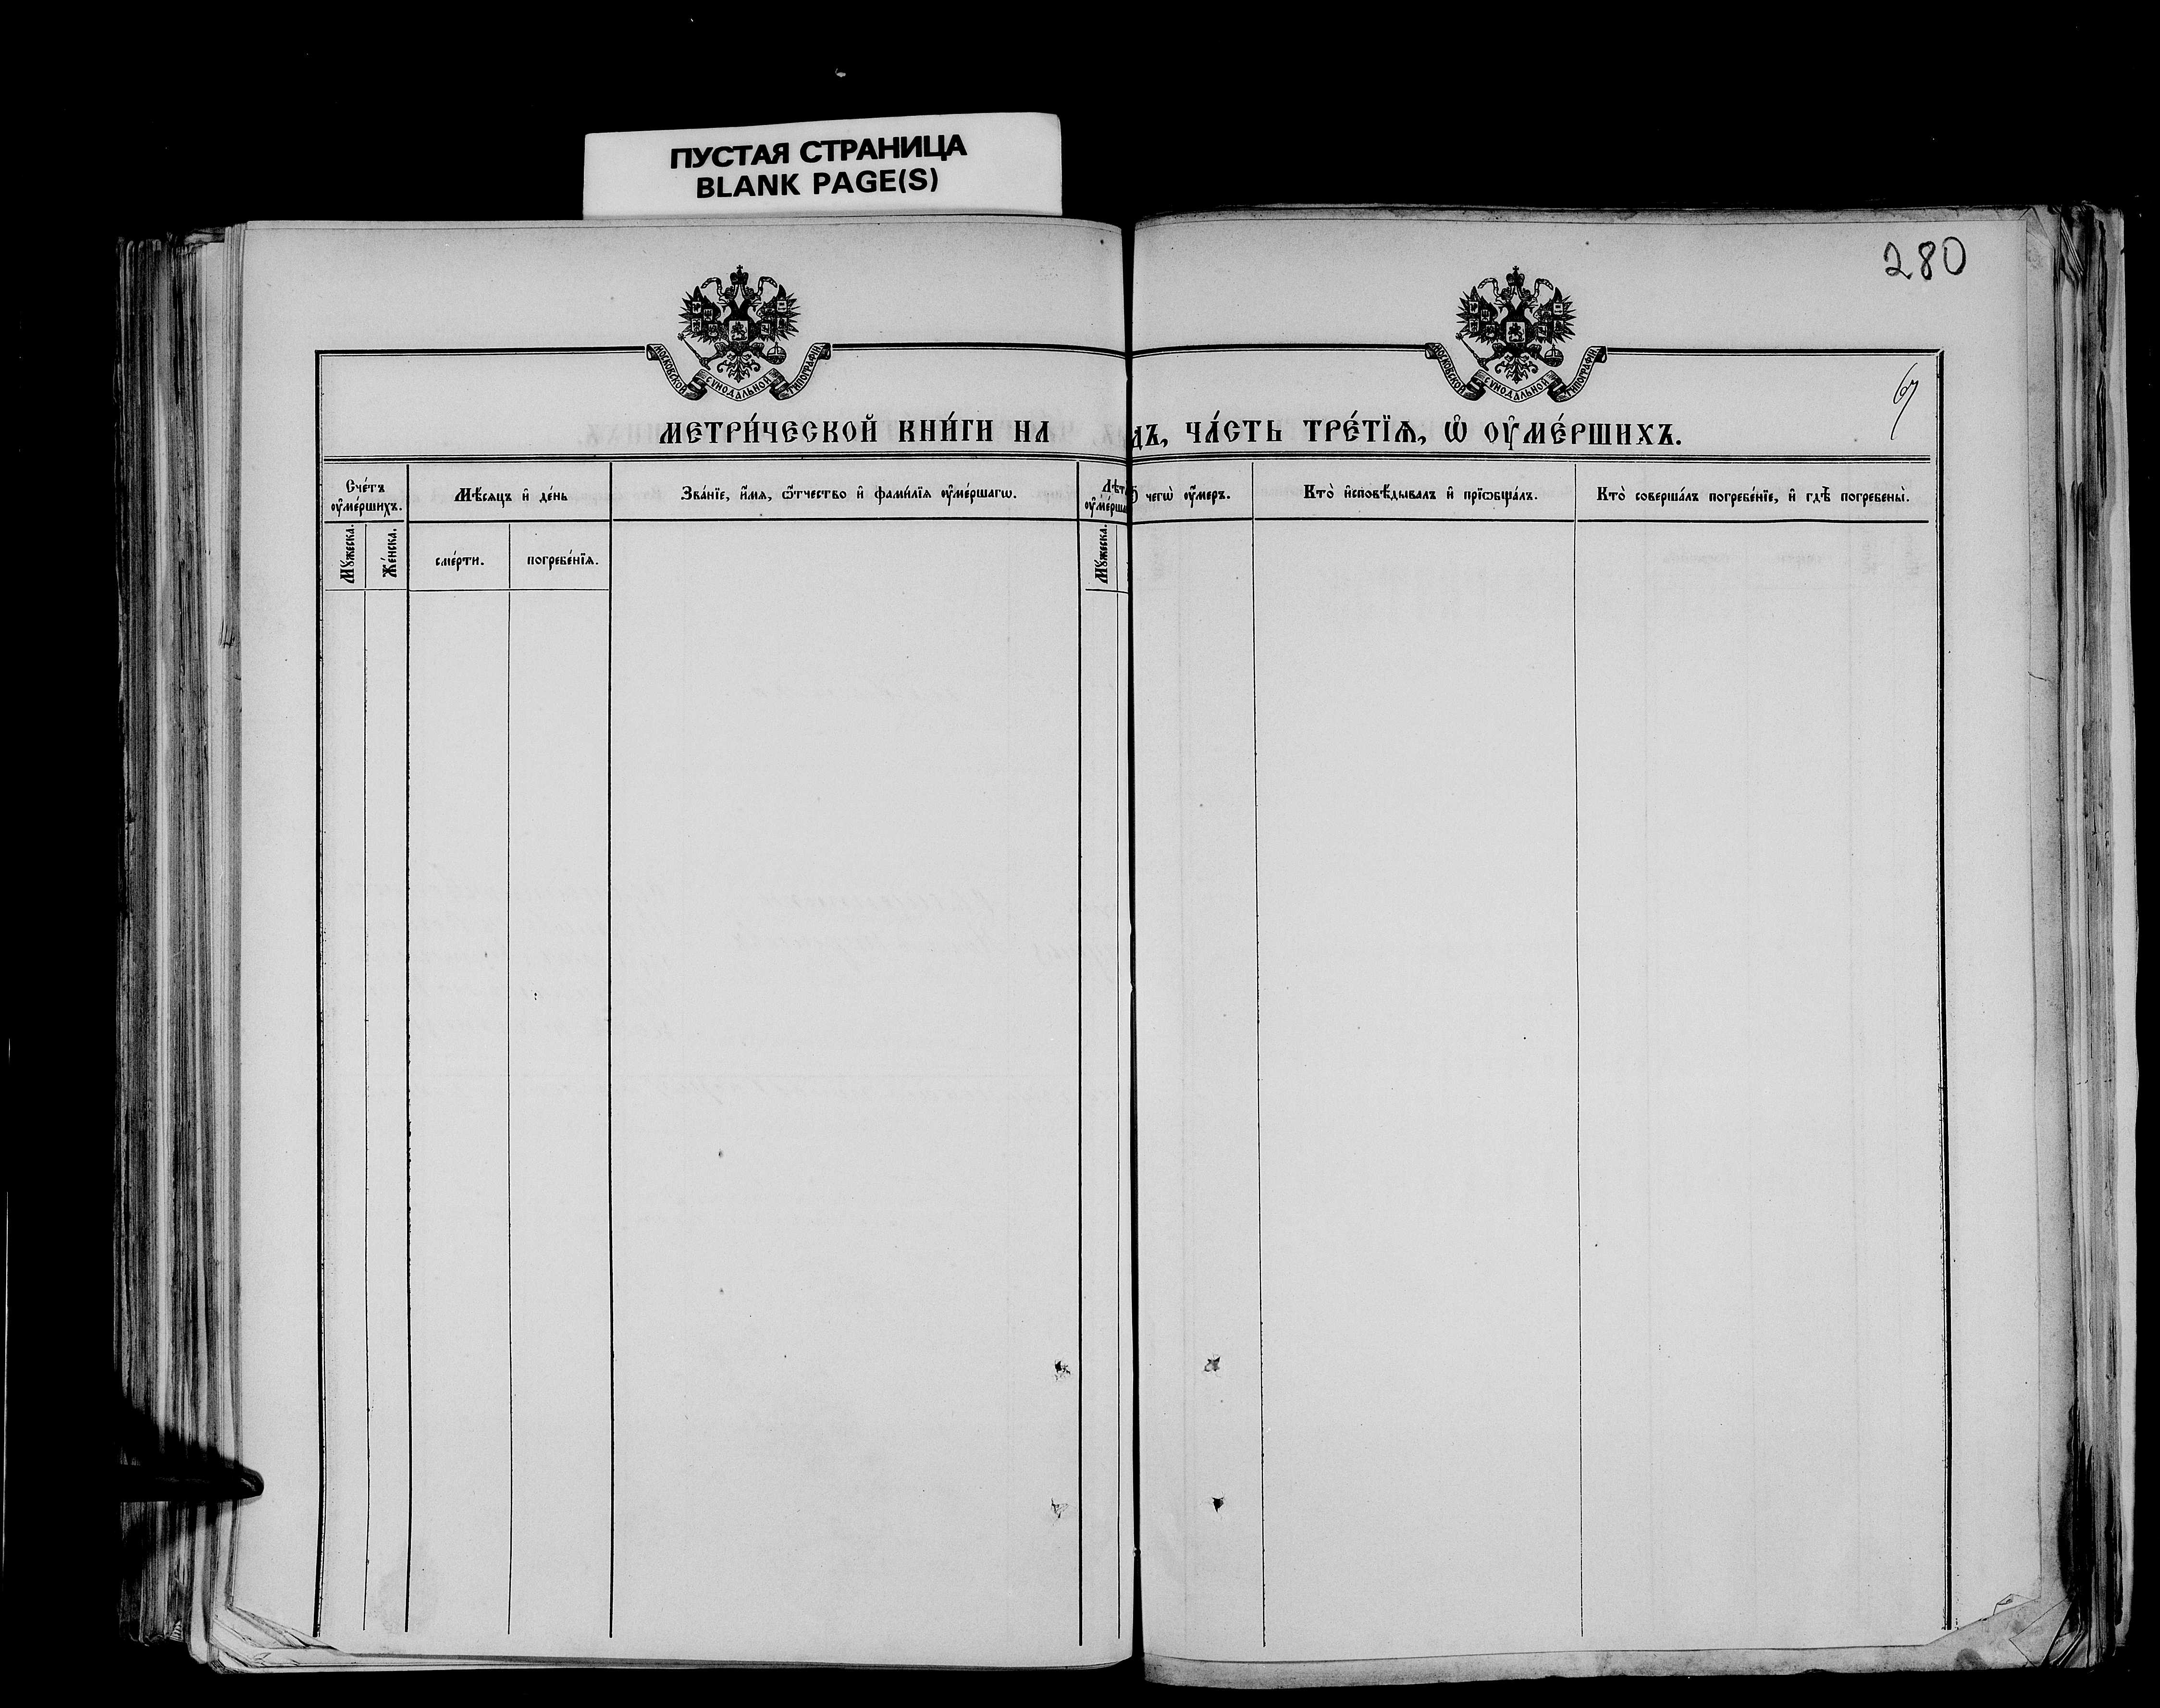 ПУСТАЯ СТРАНИЦА
BLANK PAGE(S)
280
МОСКОВСКОЙ СѴНОДАЛЬНОЙ ТИПОГРАФІИ
МОСКОВСКОЙ СѴНОДАЛЬНОЙ ТИПОГРАФІИ
МЕТРИ́ЧЕСКОЙ КНИ́ГИ НА
ДЪ, ЧА́СТЬ ТРЕ́ТЇѦ, Ѡ҆ ОУ҆МЕ́РШИХЪ.
Сче́тъ
оу҆ме́ршихъ.
Мѣ́сяцъ и҆ де́нь
Зва́нїе, и҆́мя, ѻ҆́тчество и҆ фами́лїя оу҆ме́ршагѡ.
Лѣт
оу҆ме́рша
чегѡ̀ оу҆́меръ.
Кто̀ и҆сповѣ́дывалъ и҆ прїѡбща́лъ.
Кто̀ соверша́лъ погребе́нїе, и҆ гдѣ̀ погребены̀.
Мꙋ́жеска.
Же́нска.
сме́рти.
погребе́нїя.
Мꙋ́жеска.